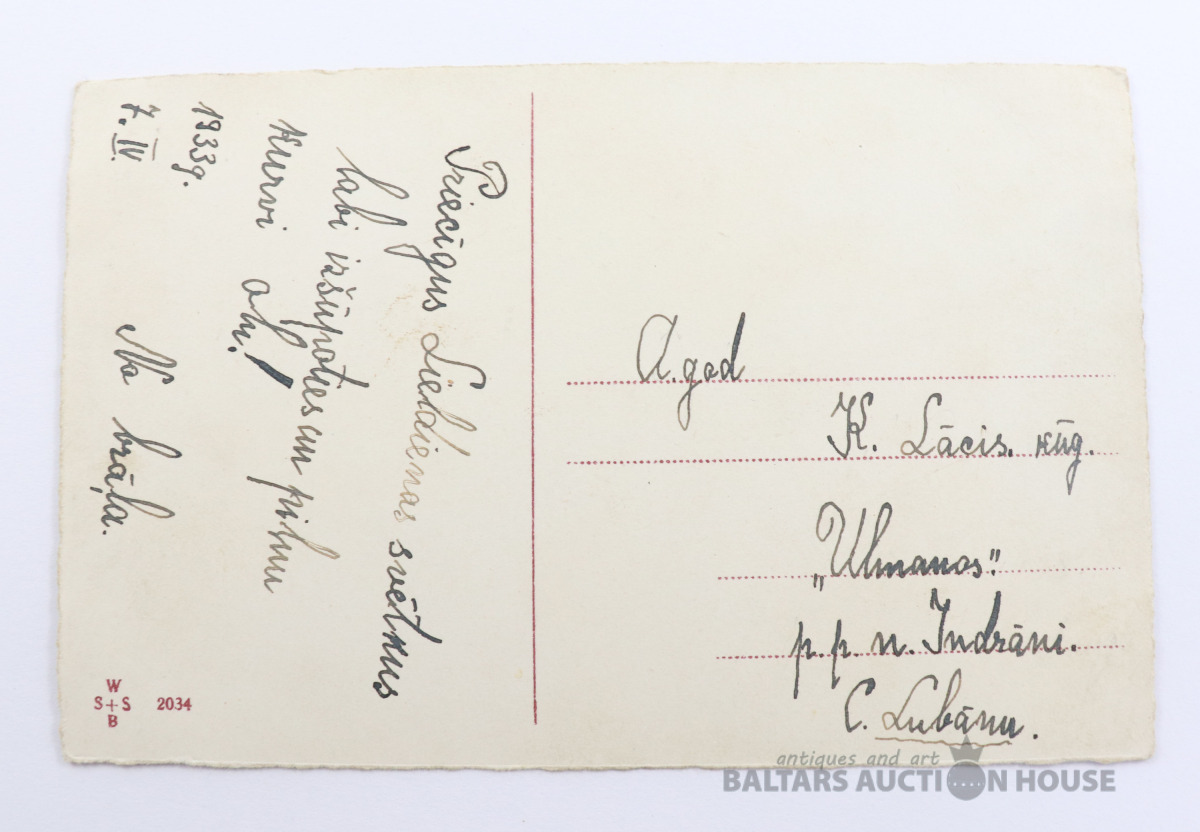 Priecīgus Lieldienas svētkus
labi izšūpoties un pilnu
kurvi olu!
1933g.
7. IV.
No brāļa.
A.god
K. Lācis. kūg.
„Ulmanos."
p.p. n. Indrāni.
C. Lubānu.
W
S+S 2034
B
antiques and art
BALTARS AUCTION HOUSE